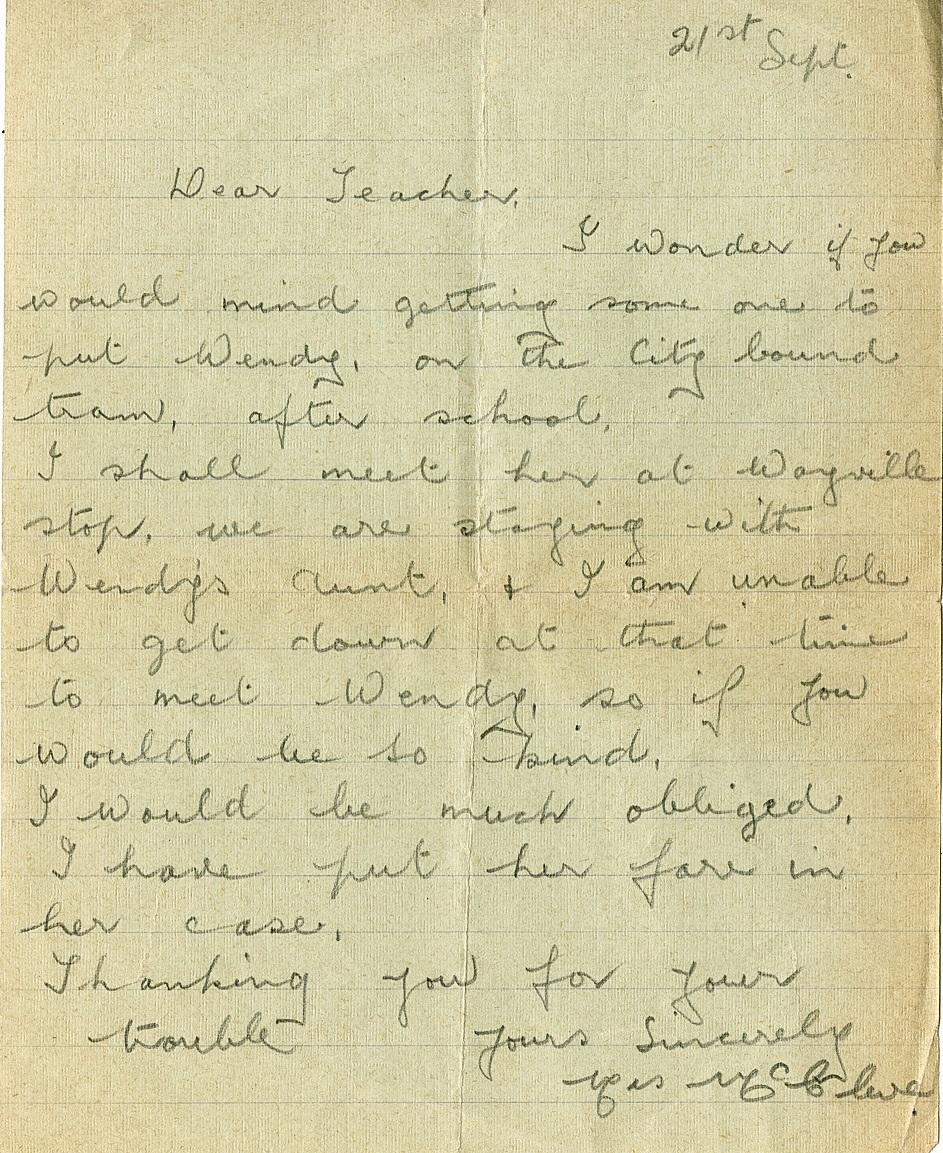 21st Sept.
Dear Teacher,
I wonder if you
would mind getting some one to
put Wendy, on the City bound
tram, after school,
I shall meet her at Wayville
stop, we are staying with
Wendy's Aunt, & I am unable
to get down at that time
to meet Wendy, so if you
would be so kind,
I would be much obliged,
I have put her fare in
her case,
Thanking you for your
trouble Yours Sincerely